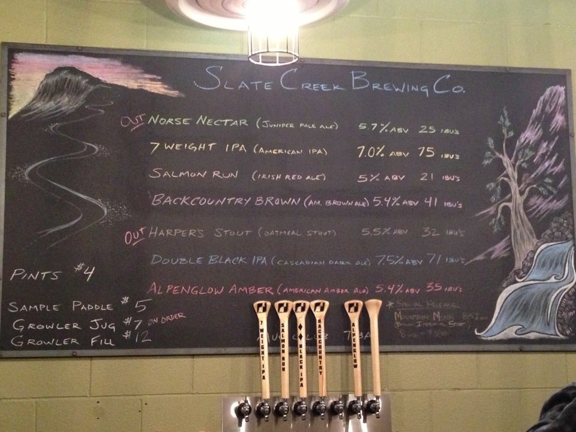 SLATE CREEK BREWING CO.
OUT NORSE NECTAR (JUNIPER PALE ALE) 5.7% ABV 25 IBU'S
7 WEIGHT IPA (AMERICAN IPA) 7.0% ABV 75 IBU'S
SALMON RUN (IRISH RED ALE) 5% ABV 21 IBU'S
BACKCOUNTRY BROWN (AM. BROWN ALE) 5.4% ABV 41 IBU'S
OUT HARPERS STOUT (OATMEAL STOUT) 5.5% ABV 32 IBU'S
DOUBLE BLACK IPA (CASCADIAN DARK ALE) 7.5% ABV 71 IBU'S
ALPENGLOW AMBER (AMERICAN AMBER ALE) 5.4% ABV 35 IBU'S
PINTS $4
SAMPLE PADDLE $5
GROWLER JUG $7 ON ORDER
GROWLER FILL $12
7 WEIGHT IPA
SALMON RUN
BLACK IPA
BACKCOUNTRY
ALPENGLOW